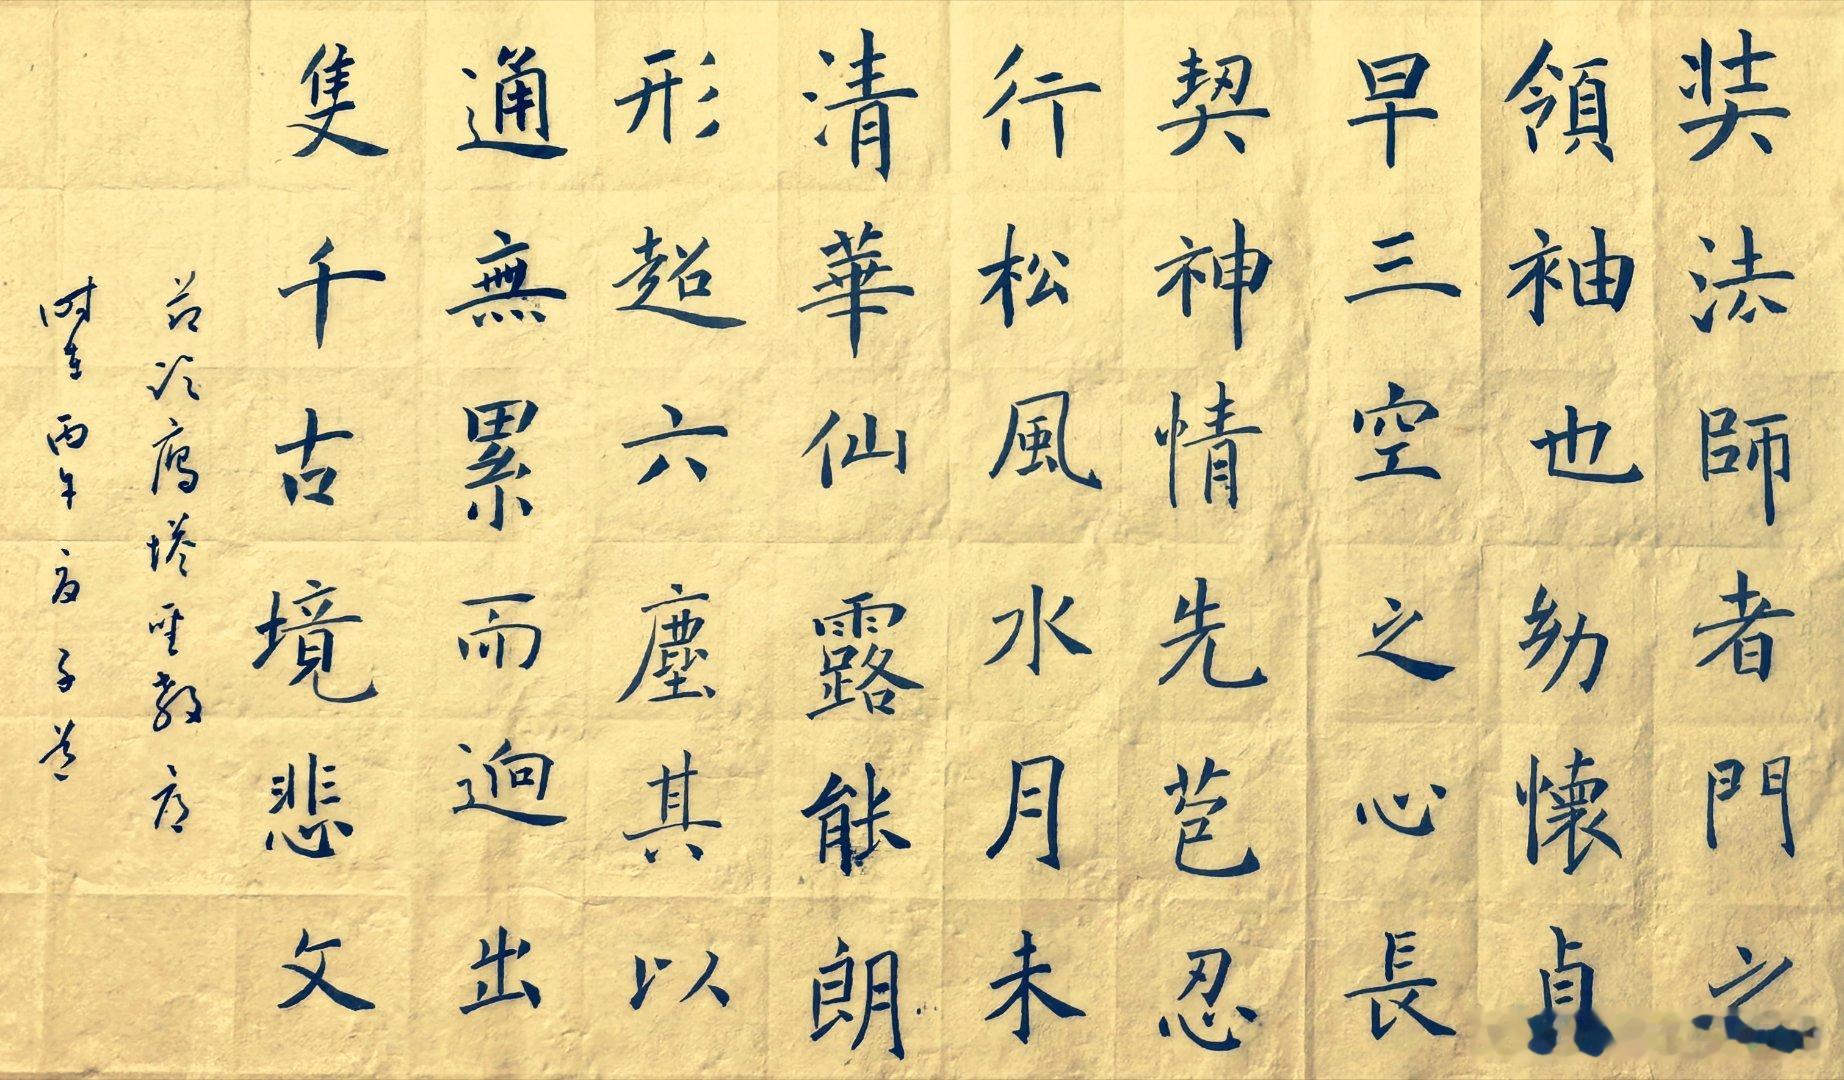 奘法師者門之
領袖也幼懷貞
早三空之心長
契神情先苞忍
行松風水月未
清華仙露能朗
形超六塵其以
通無累而逈出
隻千古境悲文
节临雁塔圣教序
时在丙午夏子